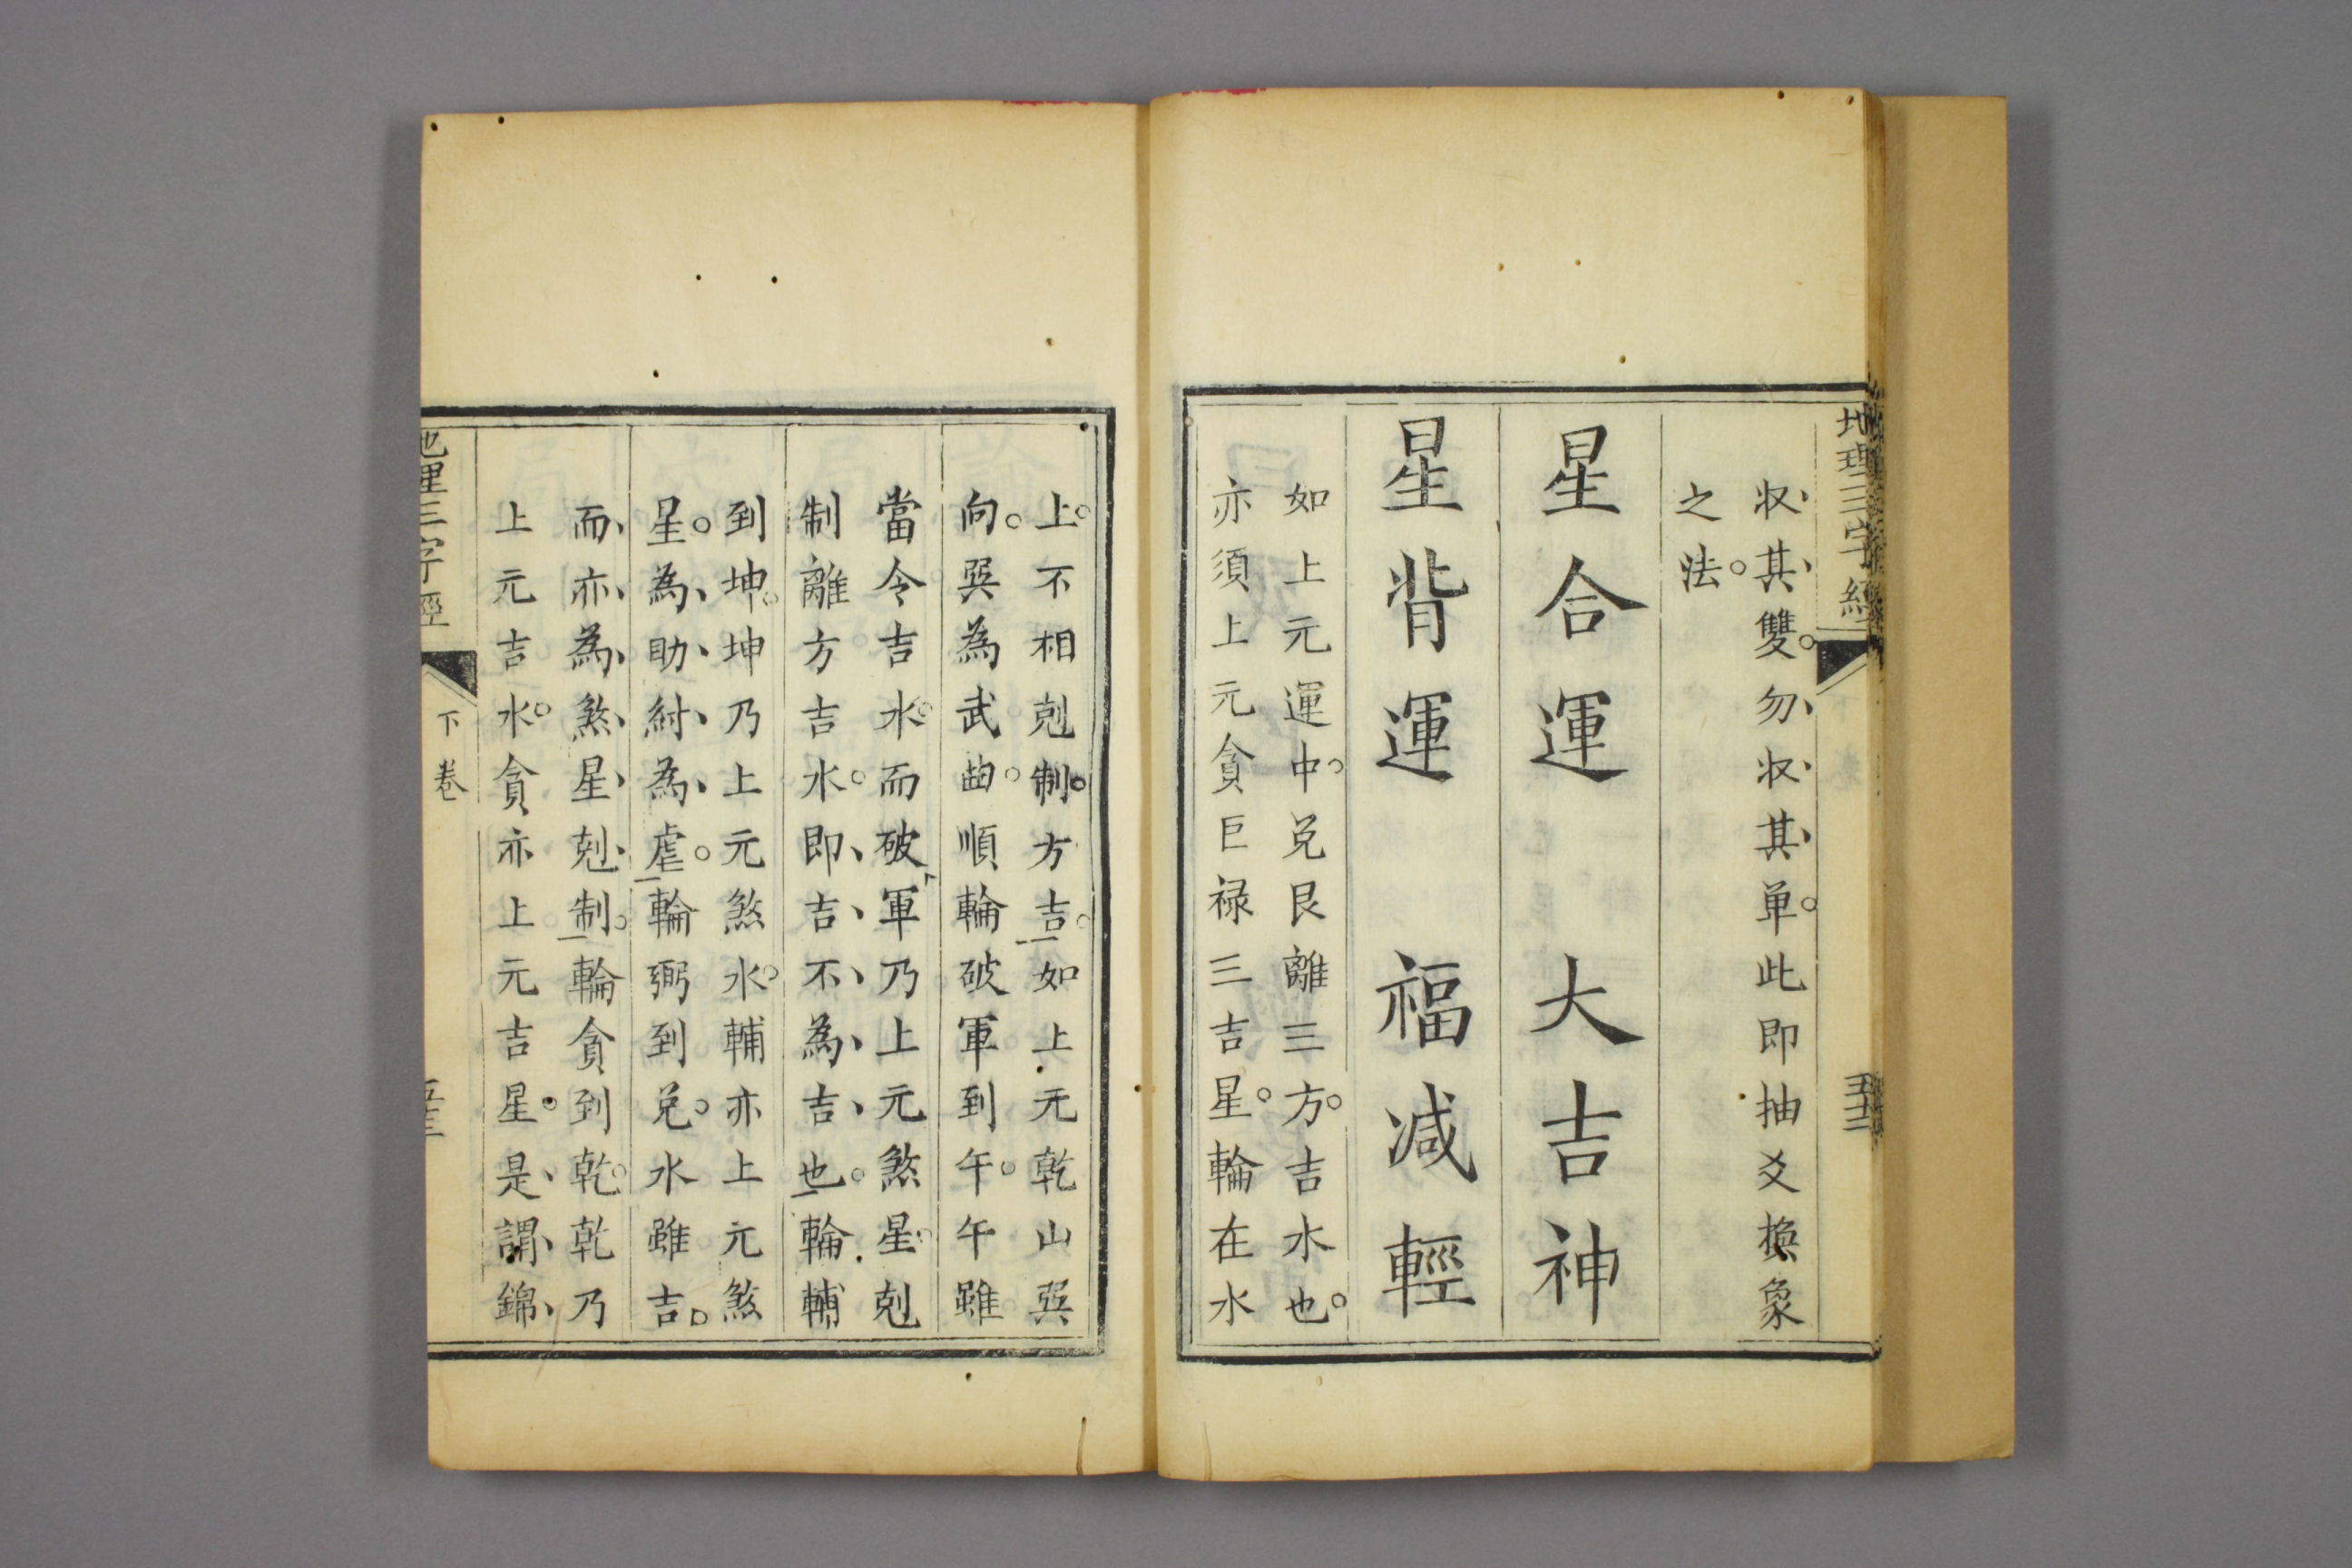 地理三字經
五十二
収其雙。勿収其单。此即抽爻換象
之法。
星合運 大吉神
星背運 福減輕
如上元運中。兌艮離三方。吉水也。
亦須上元貪巨禄三吉星。輪在水
上。不相剋制。方吉。如上元乾山巽
向。巽為武曲。順輪破軍到午。午雖
當令吉水。而破軍乃上元煞星。剋
制離方吉水。即吉不為吉也。輪輔
到坤。坤乃上元煞水。輔亦上元煞
星。為助紂為虐。輪弼到兌。水雖吉。
而亦為煞星剋制。輪貪到乾。乾乃
上元吉水。貪亦上元吉星。是謂錦
地理三字經
下卷
五十三